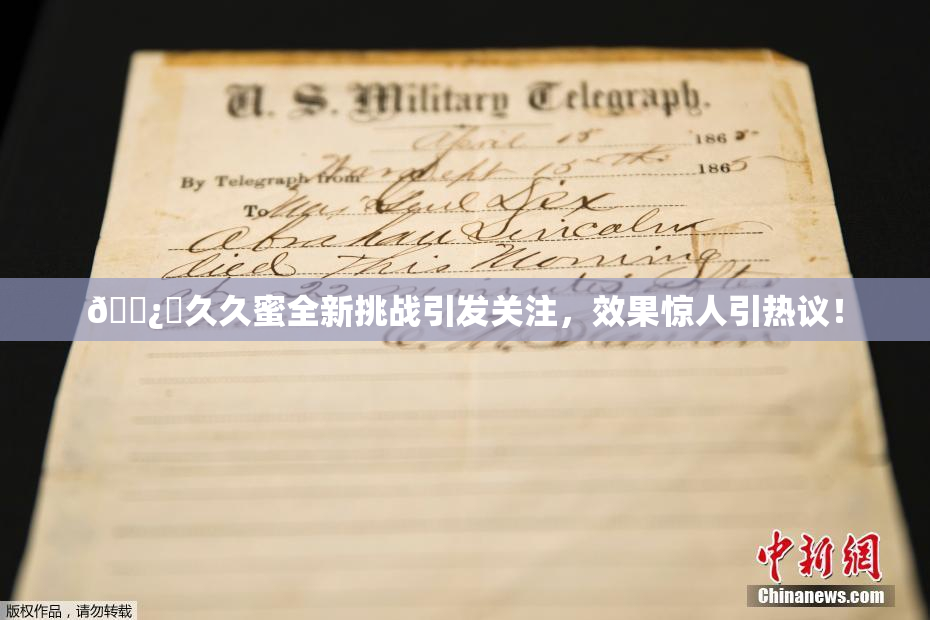 U. S. Military Telegraph.
April 15 1865
By Telegraph from War Dept 15th 1865
To Maj Genl Dix
Abraham Lincoln
died This Morning
at 22 minutes after
E. M. Stanton
ð¿久久蜜全新挑战引发关注，效果惊人引热议！
中新网
Chinanews.com
版权作品，请勿转载